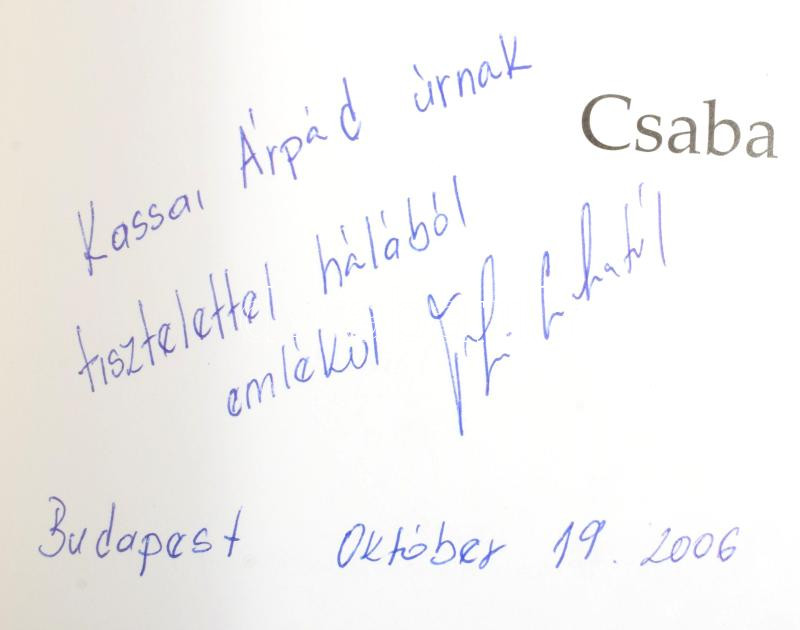 Csaba
Kassai Árpád úrnak
tisztelettel hálából
emlékül
Budapest Október 19. 2006